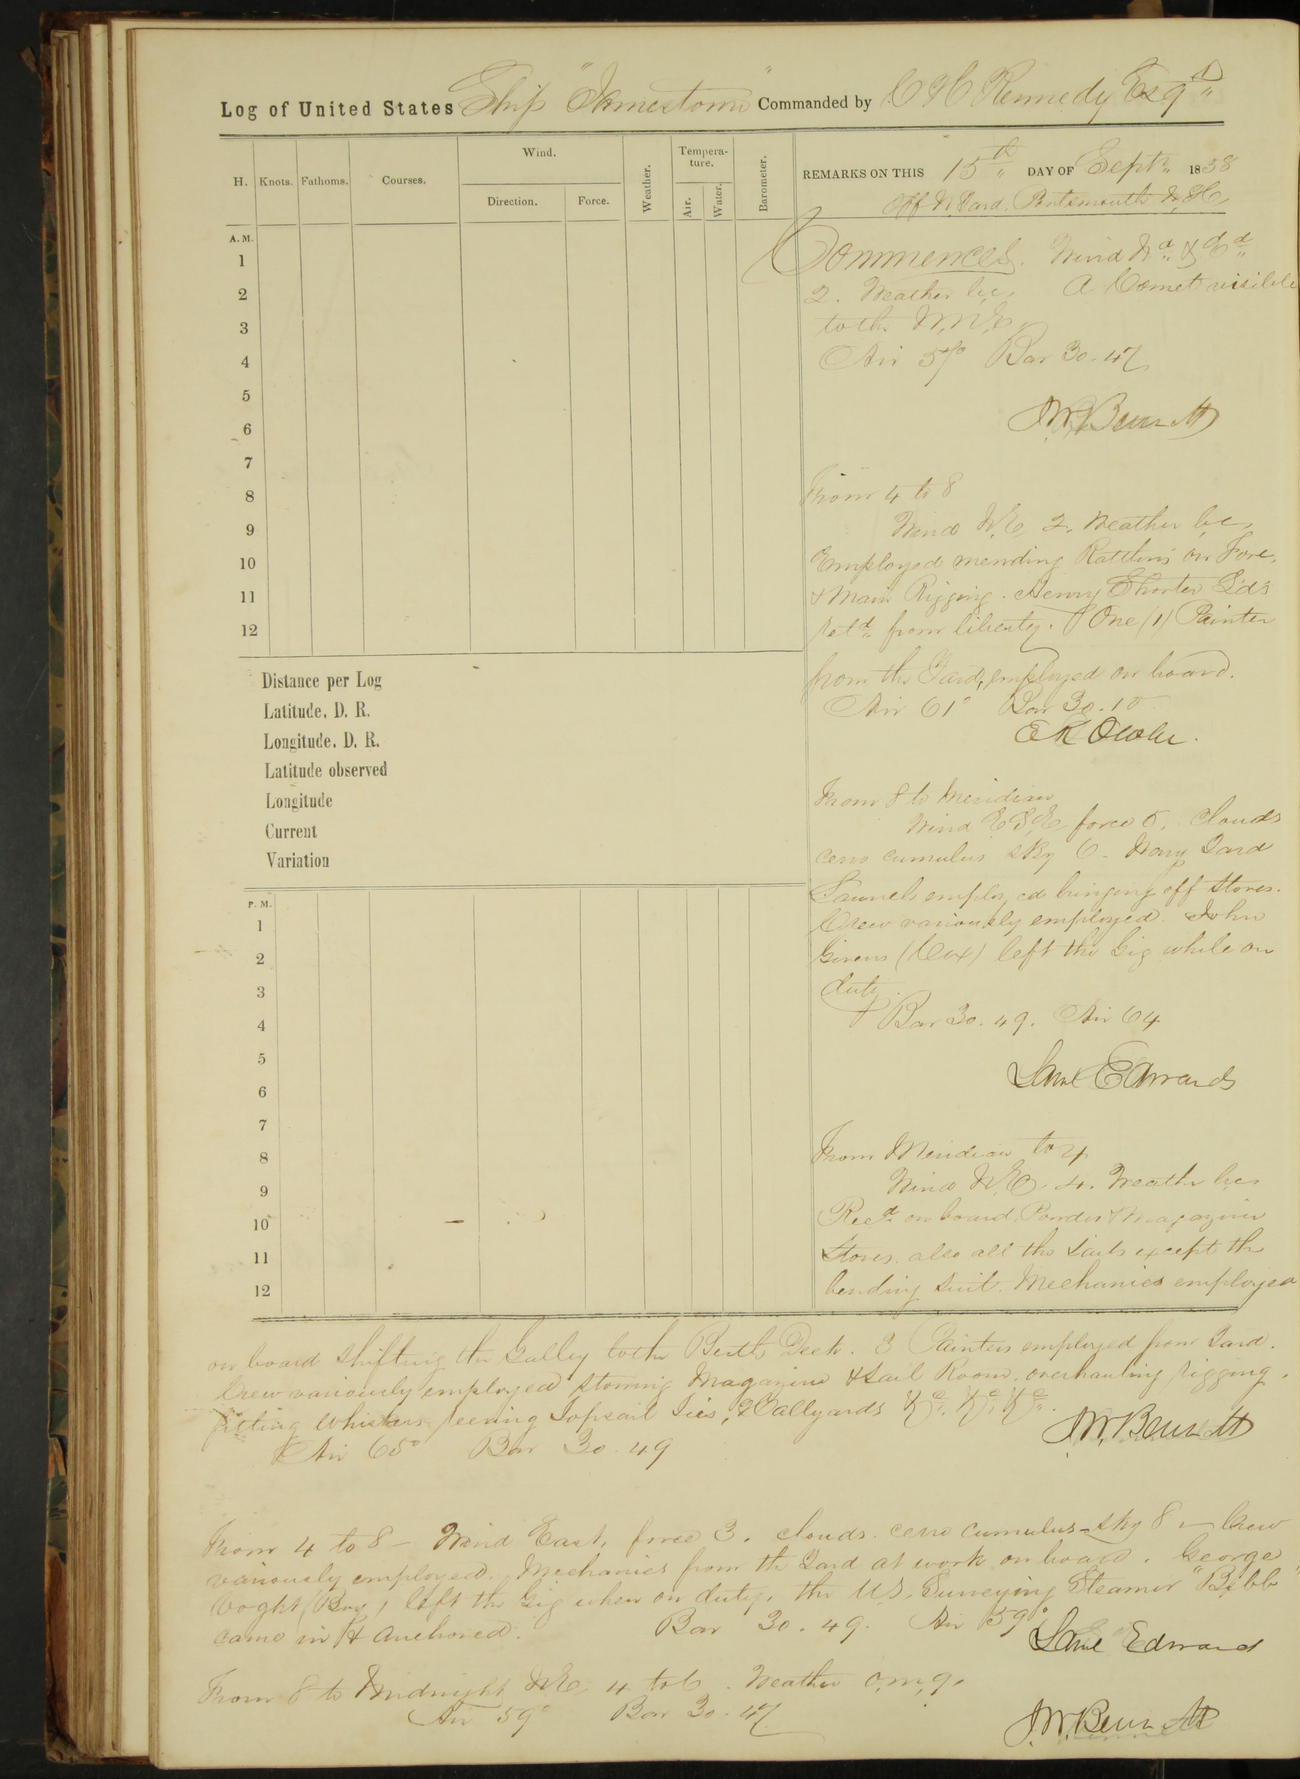 Log of United States Ship "Jamestown" Commanded by C H Kennedy Esqr
H. Knots. Fathoms. Courses. Wind. Direction. Force. Weather. Tempera-ture. Air. Water. Barometer.
REMARKS ON THIS 15th DAY OF Sept. 1858
Off N. Yard. Portsmouth N.H.
A.M.
1
2
3
4
5
6
7
8
9
10
11
12
Commences. Wind Nd & Ed
2. Weather b.c. A Comet visible
to the N.N.E.
Air 57° Bar 30.47
J.W. Bennett
From 4 to 8
Wind N.E. 2. Weather b.c.
Employed mending Rattlins on Fore
& Main Rigging. Henry Shorter Lds
retd from liberty. One (1) Painter
from the Yard, employed on board.
Air 61° Bar 30.
E K
Distance per Log
Latitude. D. R.
Longitude. D. R.
Latitude observed
Longitude
Current
Variation
From 8 to Meridian
Wind E.S.E. force 5. Clouds
cerro cumulus sky 6. Navy Yard
Launch employed bringing off Stores.
Crew variously employed. John
Givens (Cox) left the Gig while on
duty.
Bar 30.49. Air 64
Saml Edwards
P.M.
1
2
3
4
5
6
7
8
9
10
11
12
From Meridian to 4
Wind N.E. 4. Weather b.c.
Recd on board Powder & Magazine
Stores. also all the Sails except the
bending Suit. Mechanics employed
on board shifting the Galley to the Berth Deck. 3 Painters employed from Yard.
Crew variously employed storing Magazine & Sail Room. overhauling rigging.
fitting Whiskers, reeving Topsail Ties, & Hallyards &c. &c. &c.
Air 65° Bar 30.49
J.W. Bennett
From 4 to 8 - Wind East, force 3. clouds cerro cumulus - sky 8 - Crew
variously employed. Mechanics from the Yard at work on board. George
Voght (Boy) left the Gig when on duty. the U.S. Surveying Steamer "Bibb"
came in & anchored. Bar 30.49. Air 59°
Saml Edwards
From 8 to Midnight N.E. 4 to 6. Weather o.m.q.
Air 59° Bar 30.47
J.W. Bennett